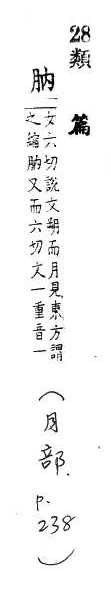 28類篇
朒
女六切說文朔而月見東方謂
之縮朒又而六切文一重音一
(月部、p.238)